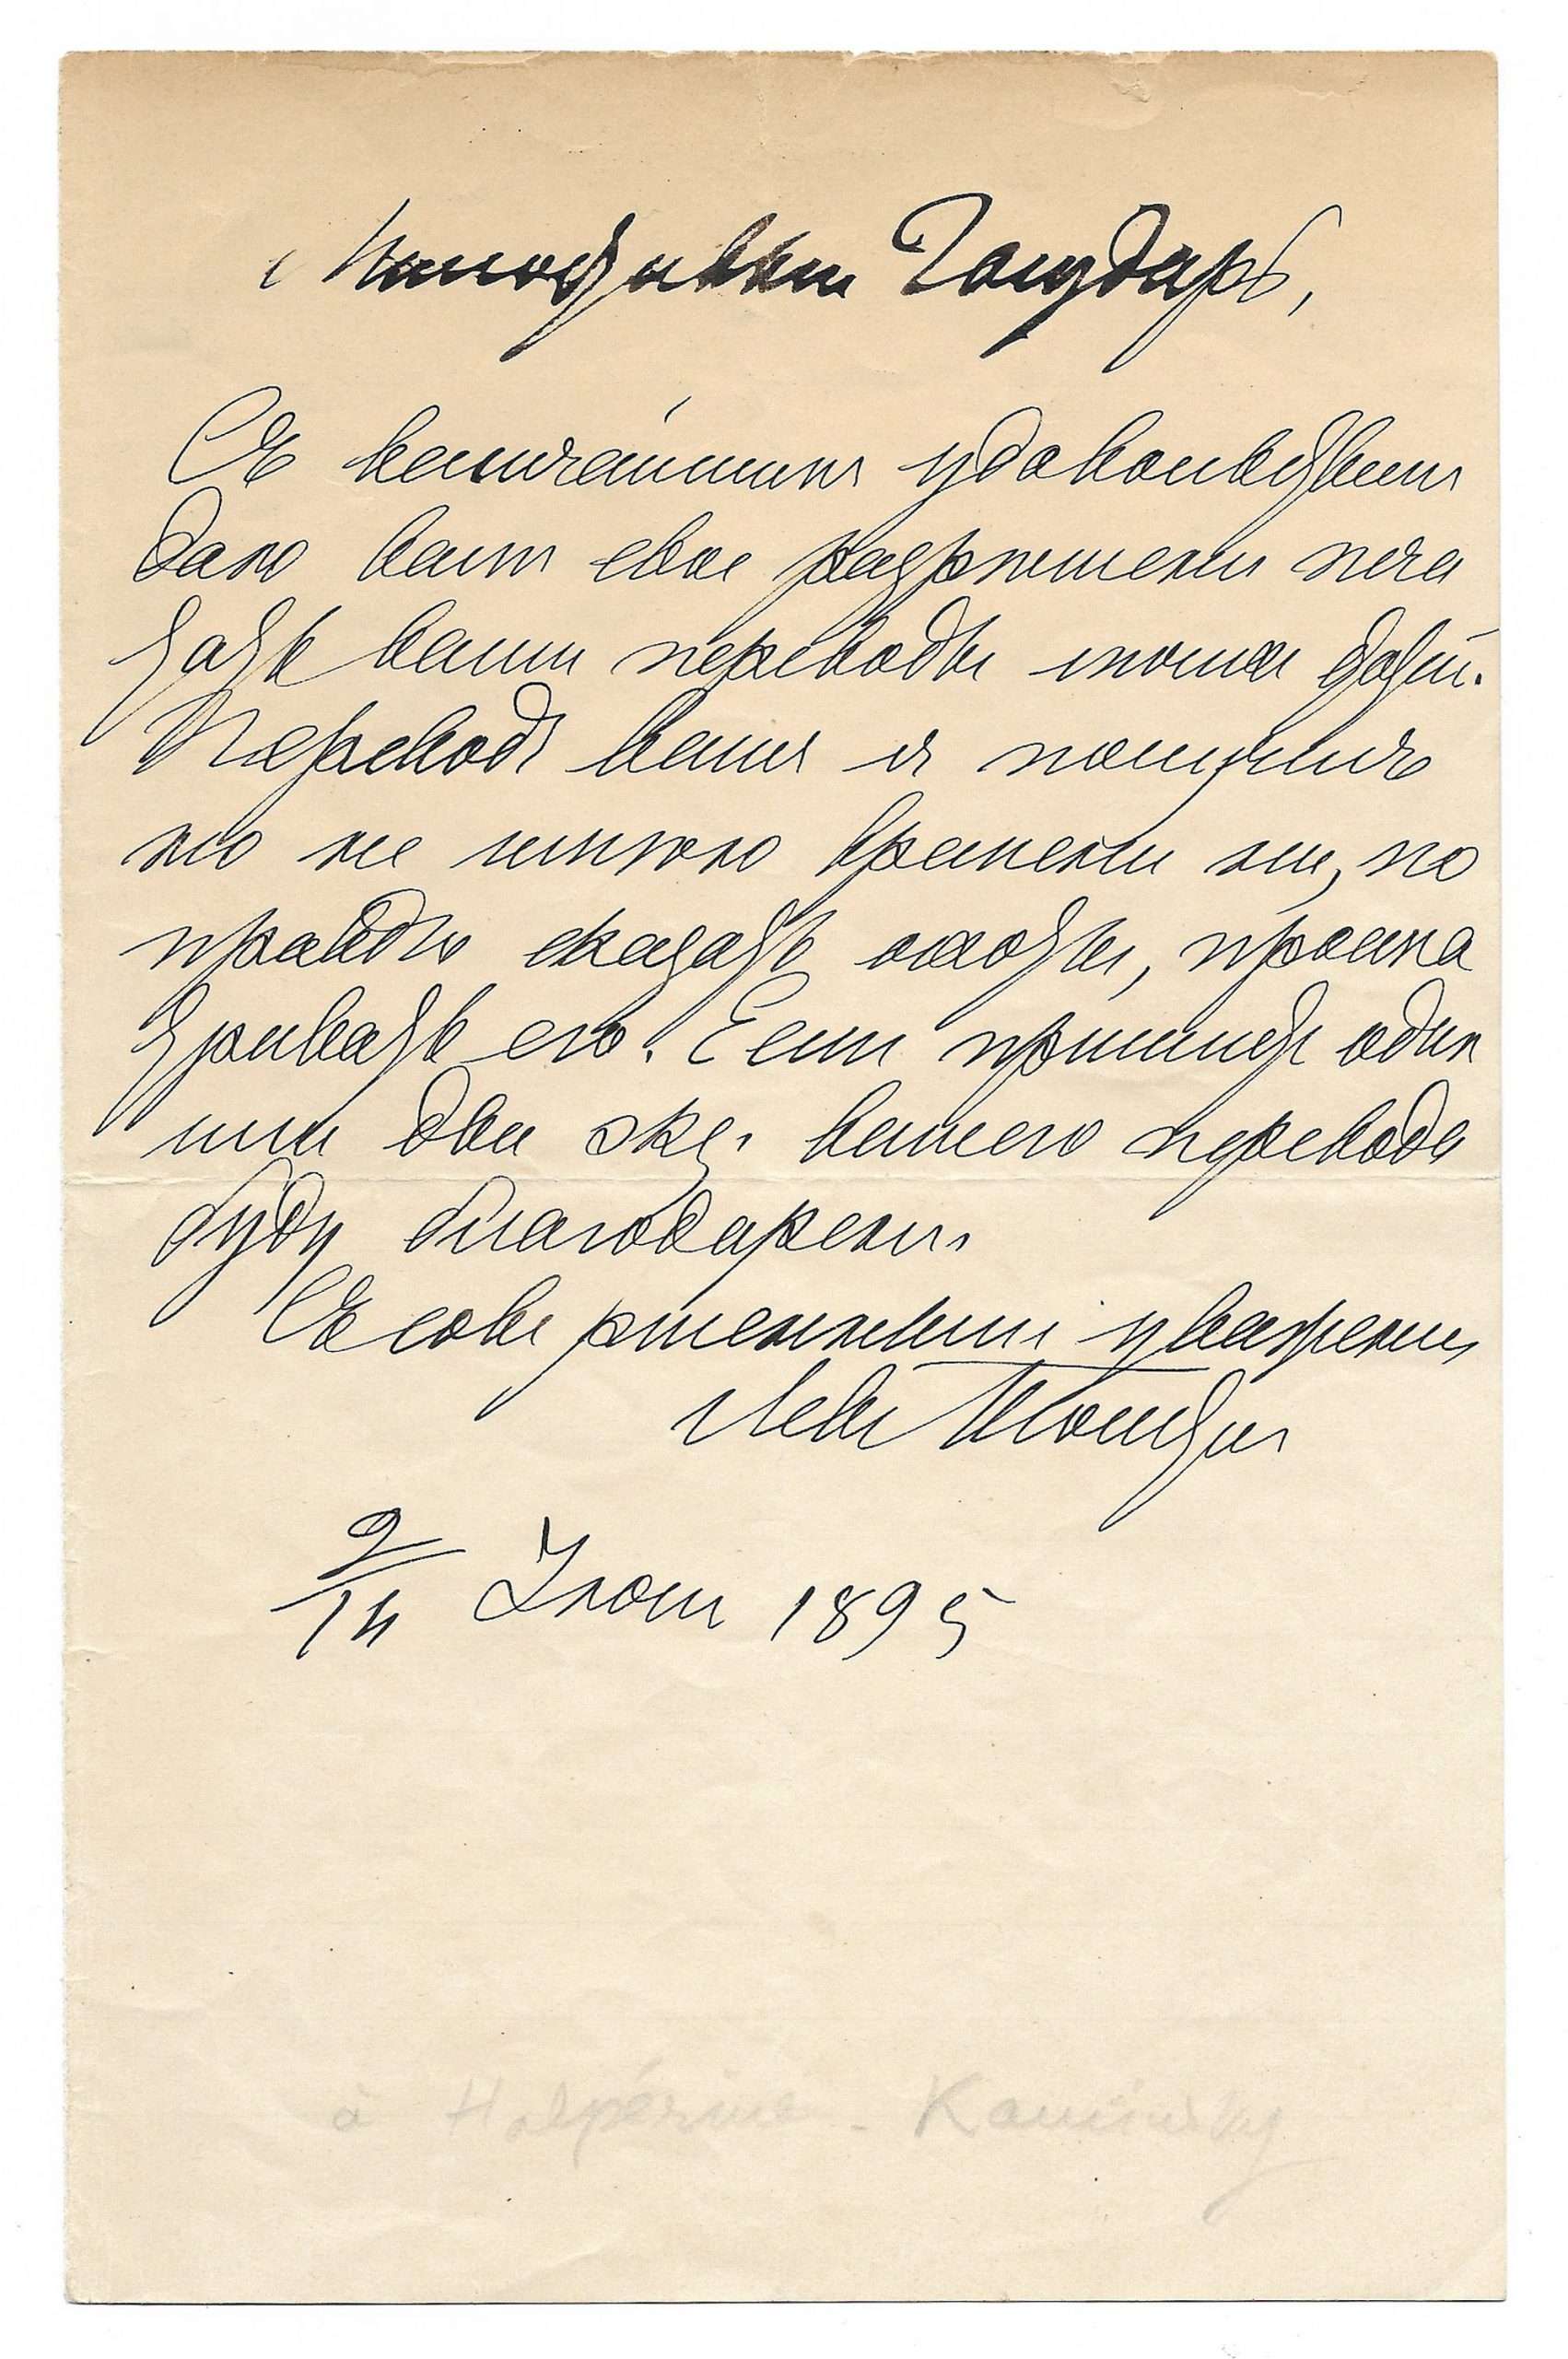 Милостивый Государь,
Съ величайшимъ удовольствіем
даю вам свое разрѣшеніе печа
тать ваши переводы моихъ
Переводъ вашъ я получилъ
но не имѣю времени ни, по
правдѣ сказать охоты, просма
тривать его. Если пришлете один
или два экз. вашего перевода
буду благодаренъ.
Съ совершеннымъ уваженіем
Левъ Толстой
2/14 Іюня 1895
à Halpérine-Kaminsky